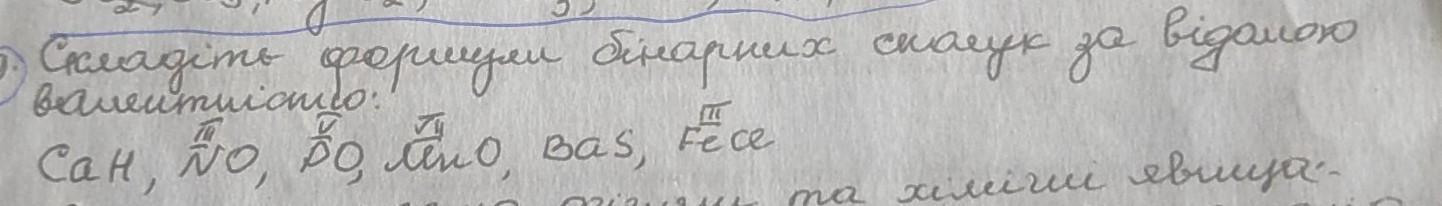 Складіть формули бінарних сполук за відомою
валентністю:
CaH, N^{III}O, P^{V}O, Mn^{VII}O, BaS, Fe^{III}Cl
та хімічні явища: